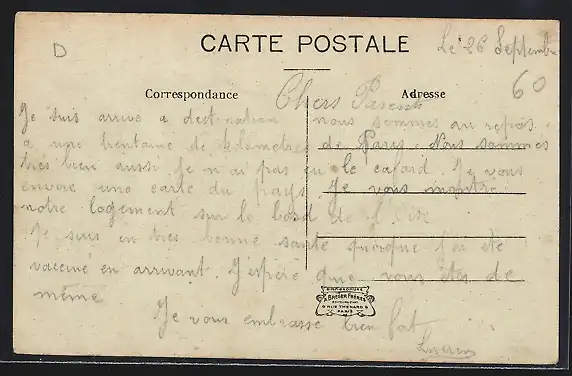 D
CARTE POSTALE
Le 26 Septembre
60
Correspondance
Adresse
Chers Parents
Je suis arrivé a destination nous sommes au repos
a une trentaine de kilometres de Paris. Nous sommes
très bien aussi je n'ai pas eu le cafard. Je vous
envoie une carte du pays. Je vous montre
notre logement sur le bord de l'Oise
Je suis en très bonne santé quoique j'ai été
vacciné en arrivant. J'espère que vous êtes de
même
Je vous embrasse bien fort
BREGER FRÈRES
9 RUE THENARD 9
PARIS